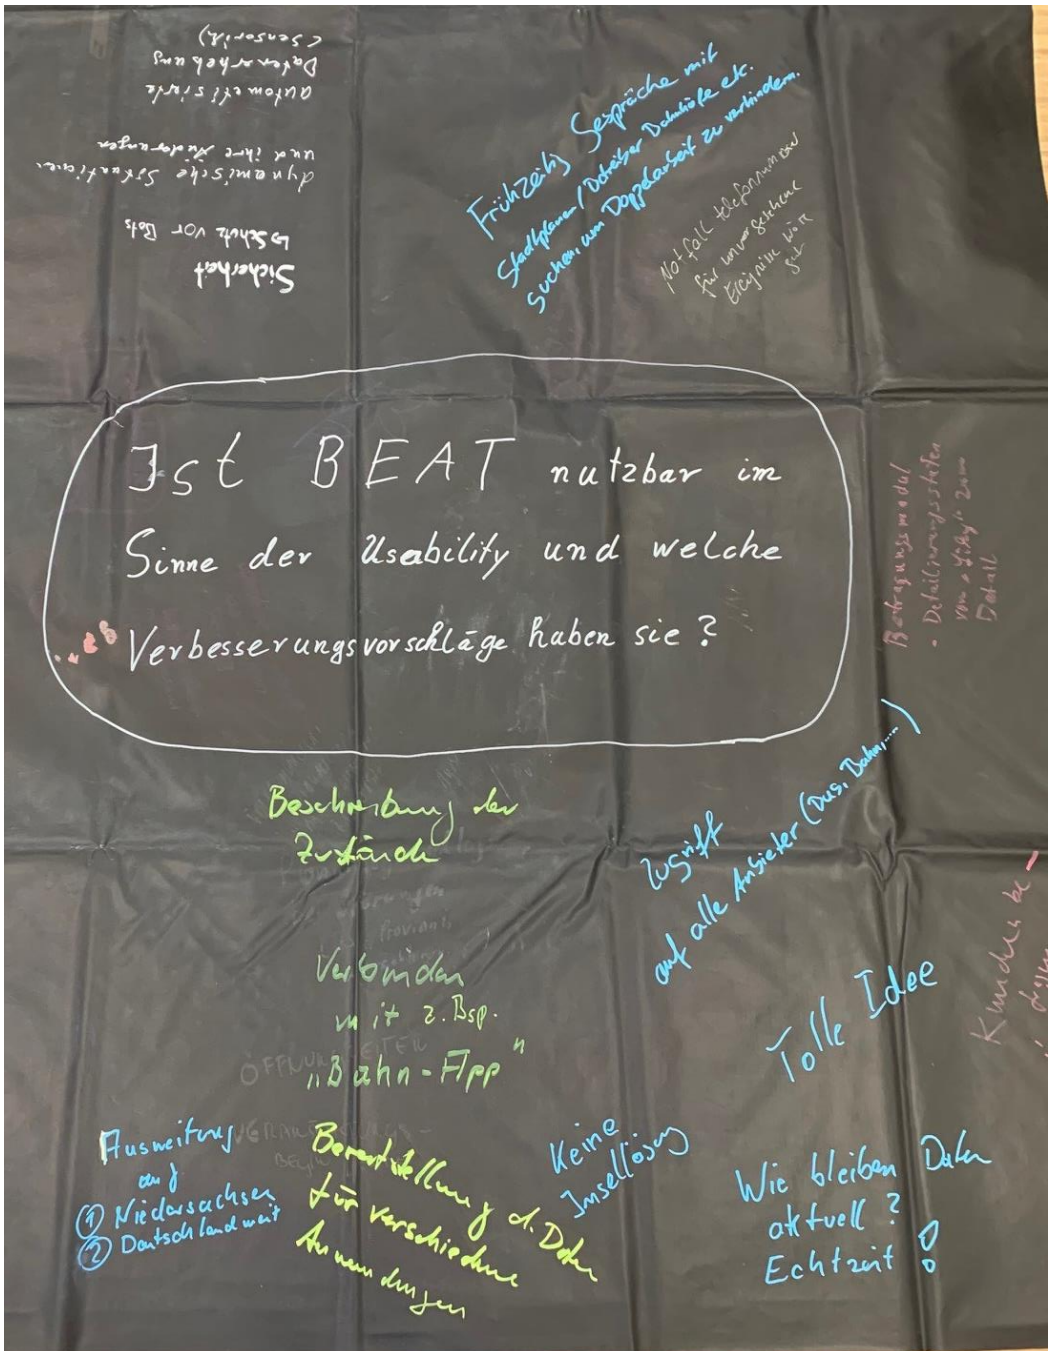 Sicherheit
↳ Schutz vor Bots
dynamische Situationen
und ihre Änderungen
automatisierte
Datenerhebung
(Sensorik)
Frühzeitig Gespräche mit
Stadtplaner/Betreiber Bahnhöfe etc.
suchen, um Doppelarbeit zu verhindern.
Notfalltelefonnummer
für unvorgesehene
Ereignisse wäre
gut
Ist BEAT nutzbar im
Sinne der Usability und welche
Verbesserungsvorschläge haben sie?
Detailierungsstufen
Detail
Beschreibung der
Zustände
Zugriff
auf alle Anbieter (Bus, Bahn,...)
Verbinden
mit z.Bsp.
"Bahn-App"
ÖFFNUNGSZEITEN
Tolle Idee
Kunden be-
Ausweitung
auf
① Niedersachsen
② Deutschlandweit
Bereitstellung d. Daten
für verschiedene
Anwendungen
Keine
Insellösung
Wie bleiben Daten
aktuell?
Echtzeit!